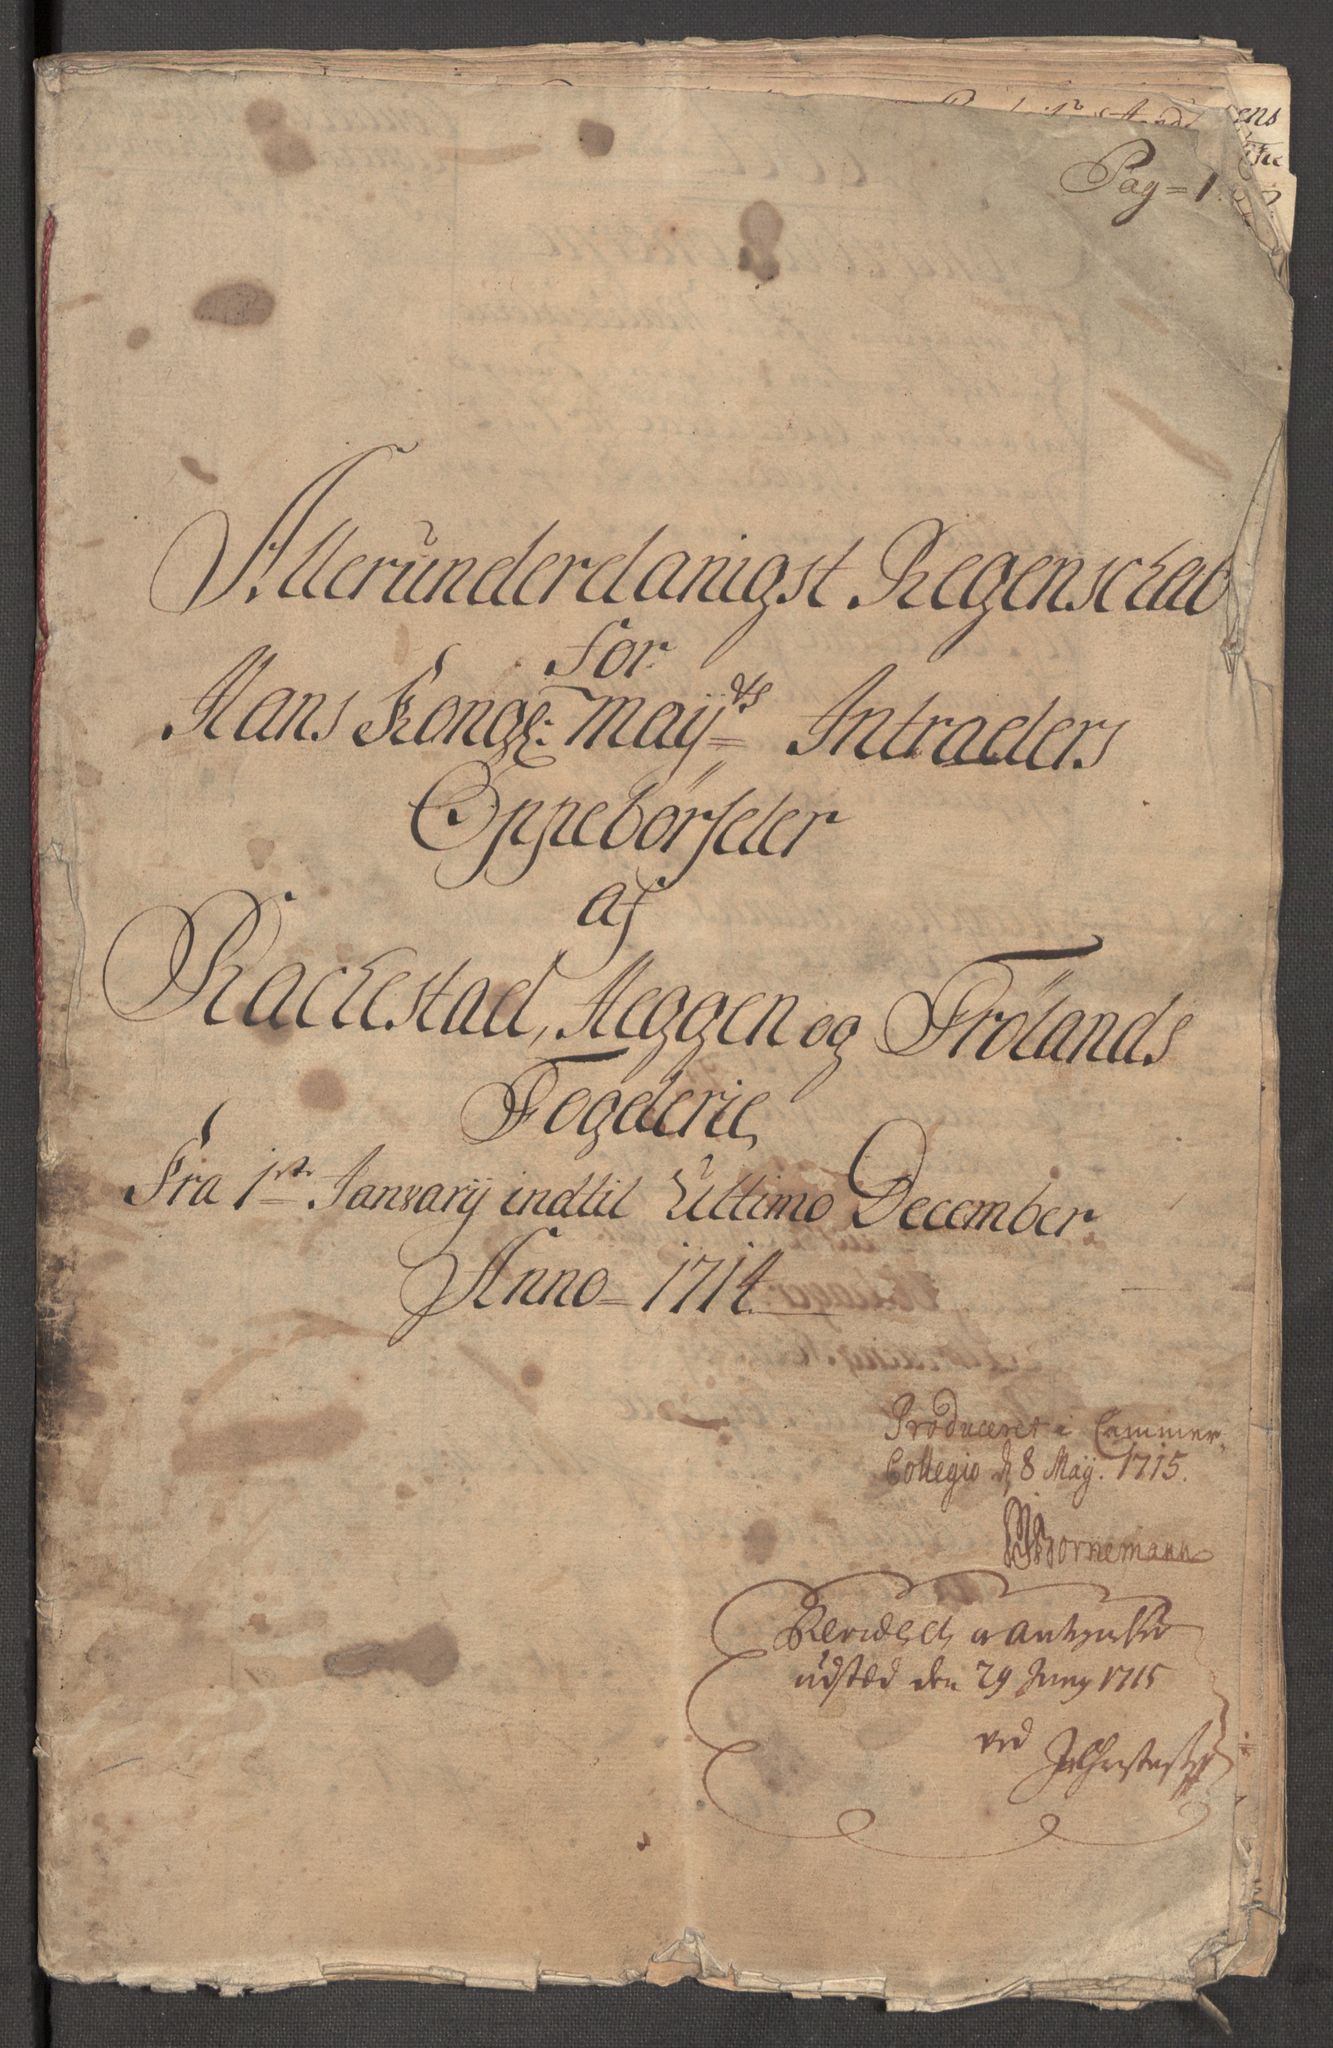 Pag = 1.
Allerunderdanigst Regenschab
for
Hans Kongl: Maÿts Intraders
Oppebörseler
af
Rackestad, Heggen og Frölands
Fogderie,
Fra 1st Januarÿ indtil Ultimo December
Anno 1714
Produceret i Cammer
Collegio d. 8 Maÿ. 1715.
Bornemann
Revideret og Antegnelse
udstæd den 29 Junÿ 1715
ved